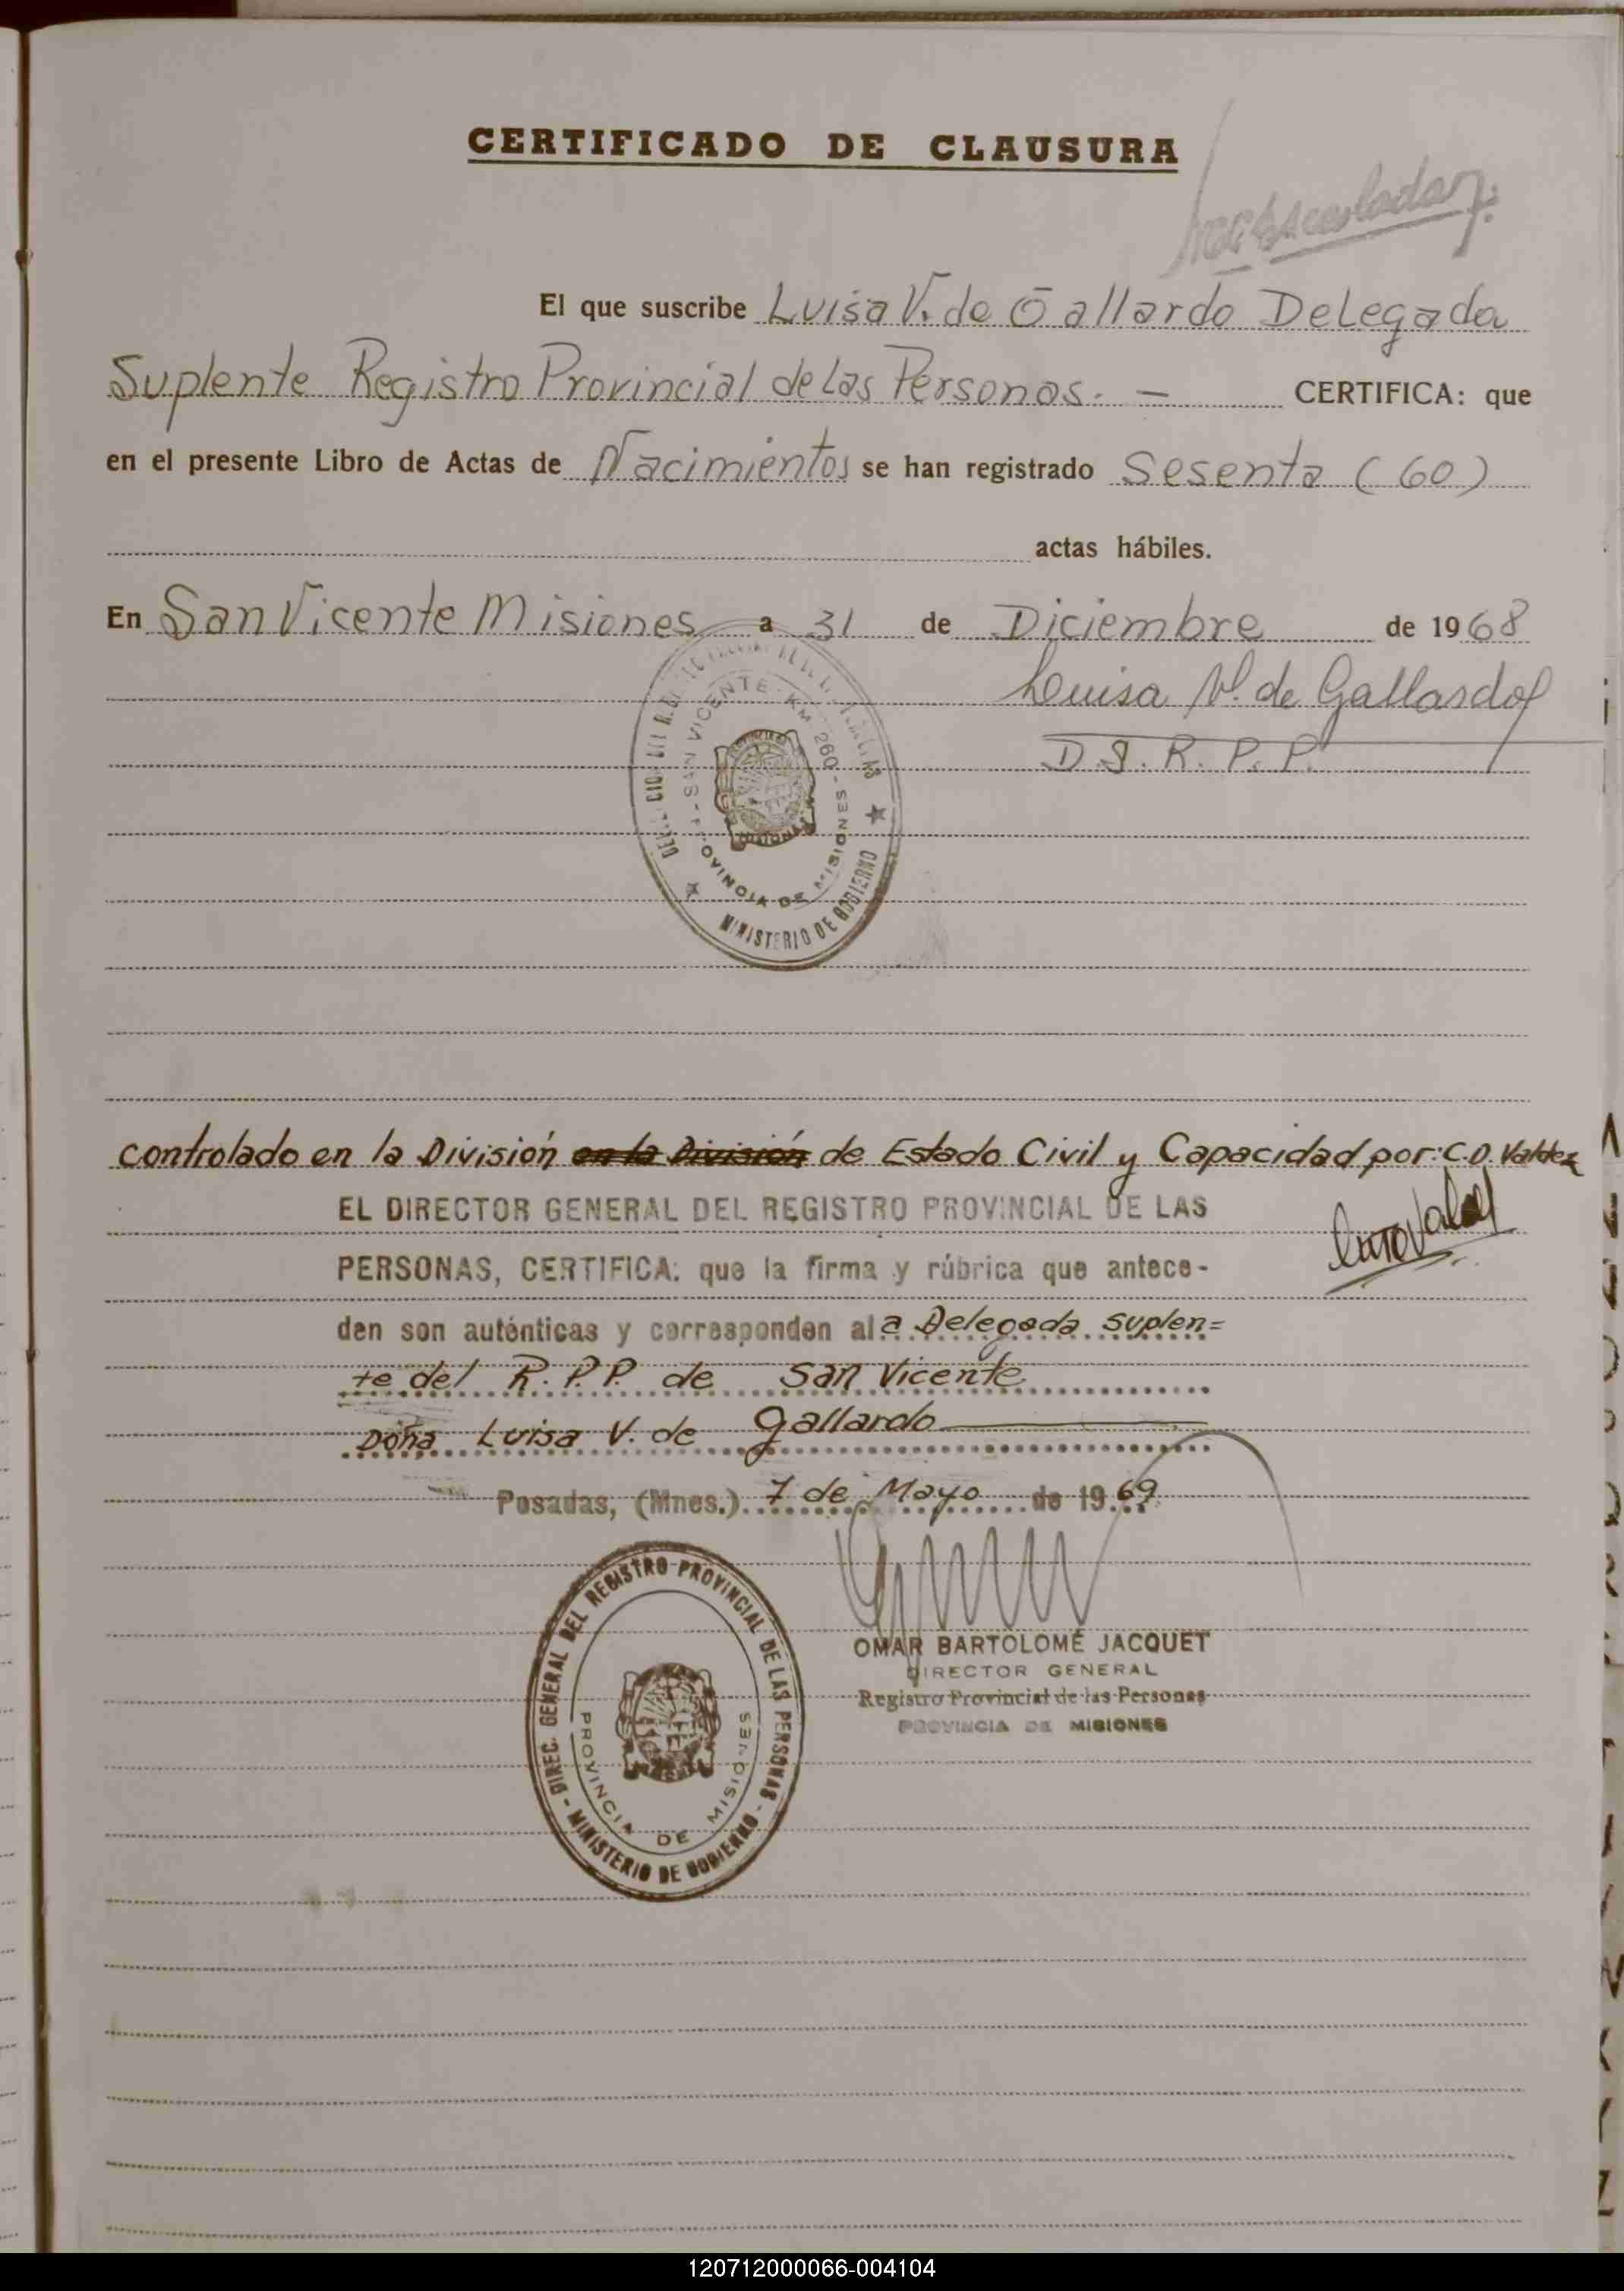 CERTIFICADO DE CLAUSURA
El que suscribe Luisa V. de Gallardo Delegada
Suplente Registro Provincial de Las Personas. — CERTIFICA: que
en el presente Libro de Actas de Nacimientos se han registrado Sesenta (60)
actas hábiles.
En San Vicente Misiones a 31 de Diciembre de 1968
Luisa V. de Gallardo
D.S.R.P.P.
SAN VICENTE - KM 260 - PROVINCIA DE MISIONES
MINISTERIO DE GOBIERNO
MISIONES
controlado en la División en la División de Estado Civil y Capacidad por: C.D. Valdez
EL DIRECTOR GENERAL DEL REGISTRO PROVINCIAL DE LAS
PERSONAS, CERTIFICA: que la firma y rúbrica que antece-
den son auténticas y corresponden al a Delegada suplen=
te del R.P.P. de San Vicente
Doña Luisa V. de Gallardo
Posadas, (Mnes.) 7 de Mayo de 1969
DIREC. GENERAL DEL REGISTRO PROVINCIAL DE LAS PERSONAS - MINISTERIO DE GOBIERNO -
PROVINCIA DE MISIONES
OMAR BARTOLOMÉ JACQUET
DIRECTOR GENERAL
Registro Provincial de las Personas
PROVINCIA DE MISIONES
120712000066-004104